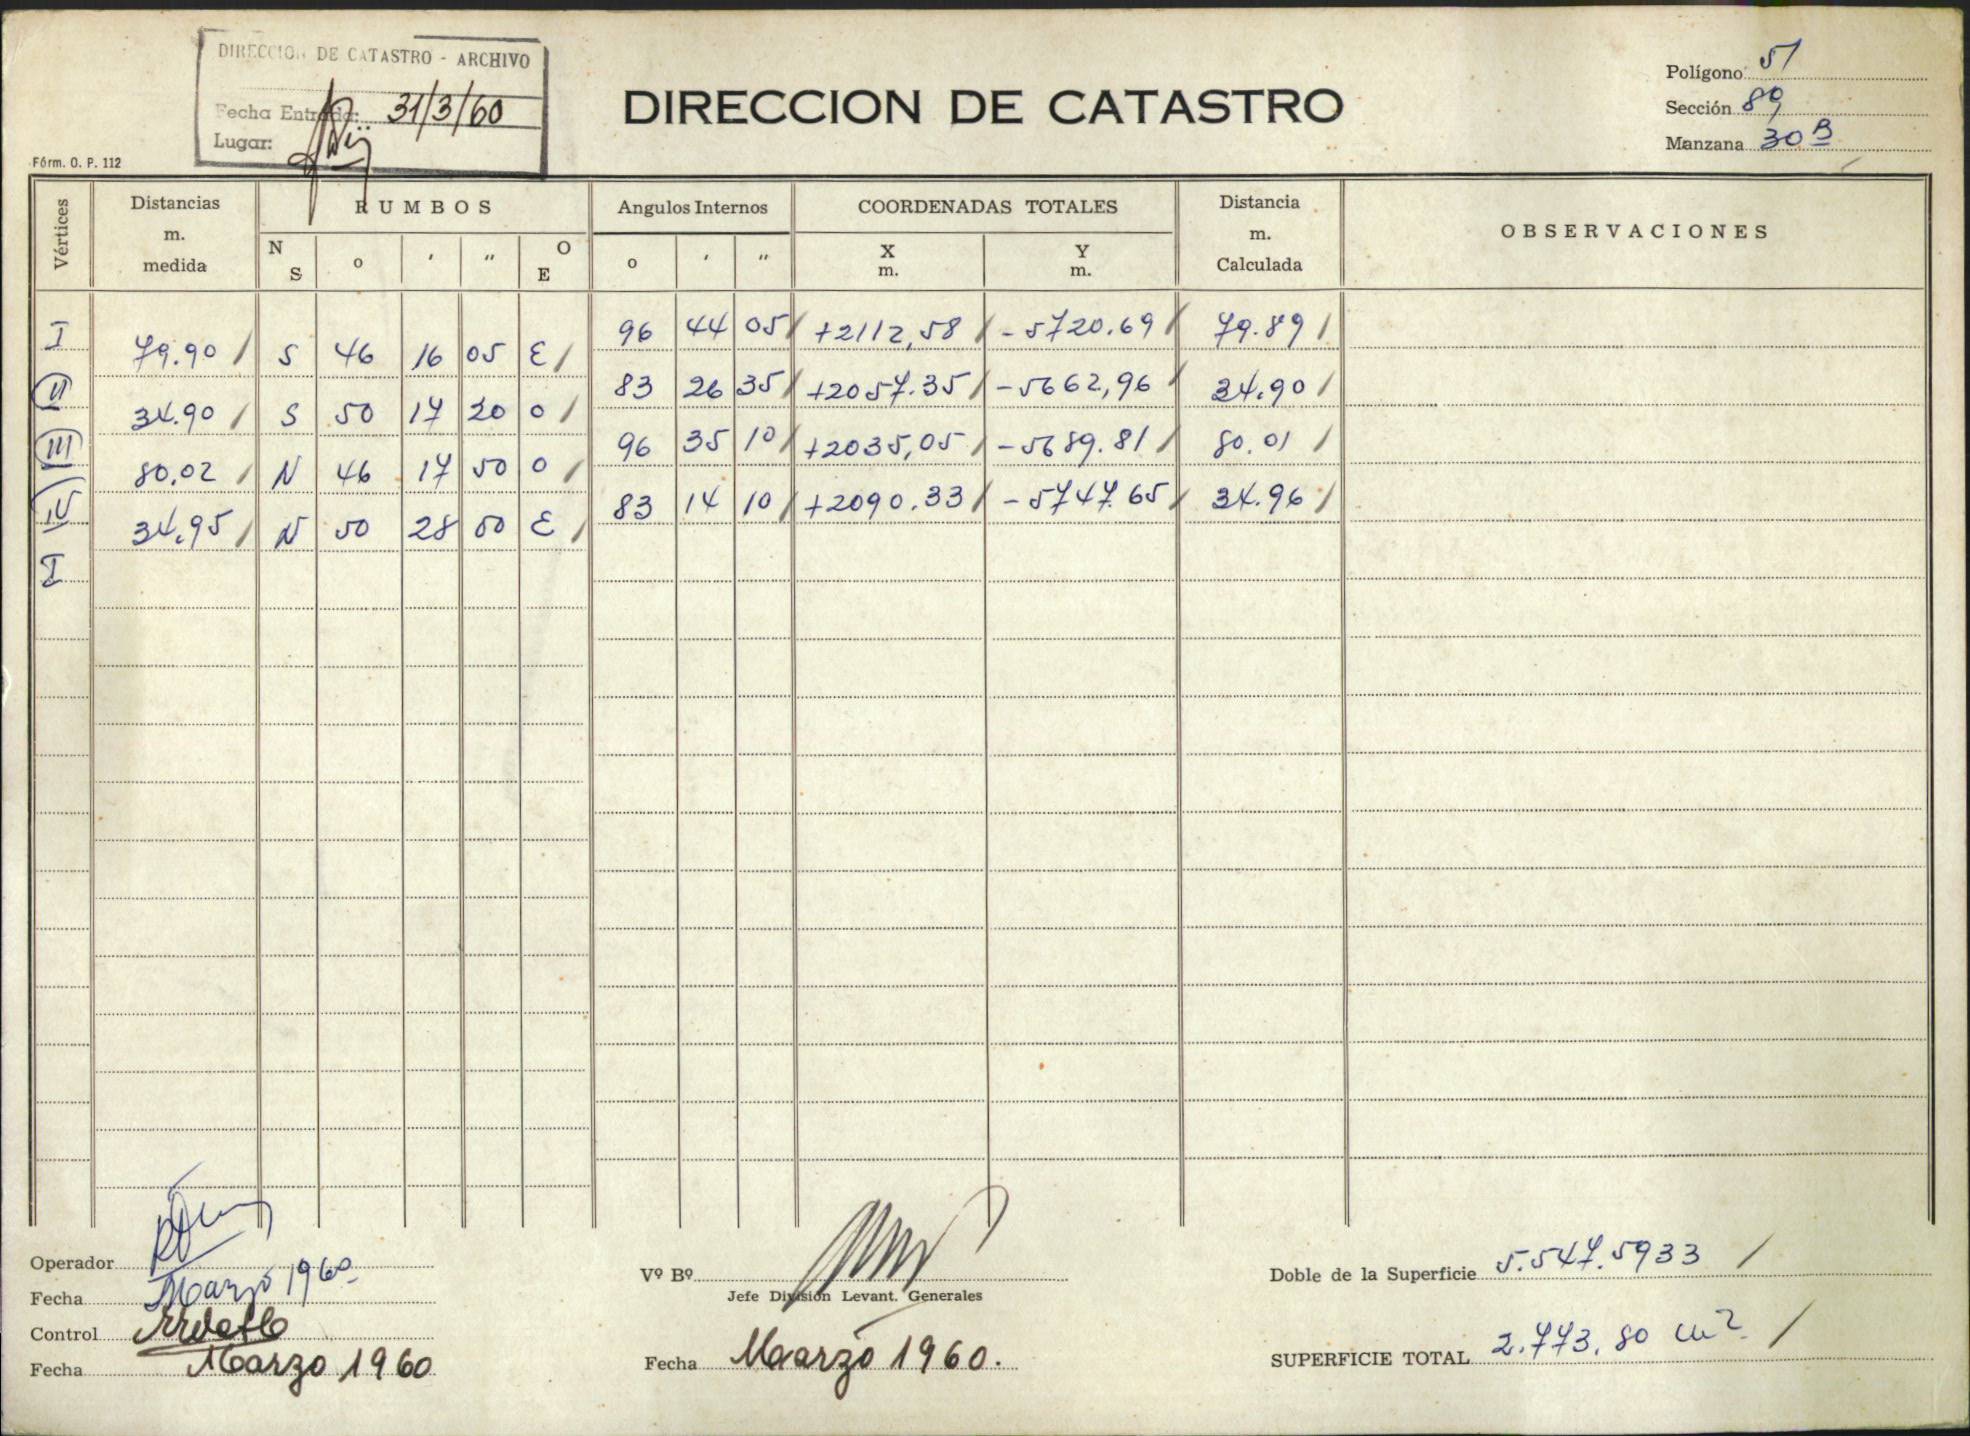 DIRECCION DE CATASTRO - ARCHIVO
Fecha Entrada: 31/3/60
Lugar:
Fórm. O. P. 112
DIRECCION DE CATASTRO
Polígono 51
Sección 89
Manzana 30 B
Vértices Distancias m. medida RUMBOS Angulos Internos COORDENADAS TOTALES Distancia m. Calculada OBSERVACIONES
N S o ′ ″ O E o ′ ″ X m. Y m.
I 96 44 05 +2112,58 -5720.69 79.89
79.90 S 46 16 05 E
II 83 26 35 +2057.35 -5662,96 34.90
34.90 S 50 17 20 O
III 96 35 10 +2035,05 -5689.81 80.01
80.02 N 46 17 50 O
IV 83 14 10 +2090.33 -5747.65 34.96
34.95 N 50 28 50 E
I
Operador
Fecha Marzo 1960
Control
Fecha Marzo 1960
Vº Bº
Jefe División Levant. Generales
Fecha Marzo 1960.
Doble de la Superficie 5.547.5933
SUPERFICIE TOTAL 2.773.80 m2